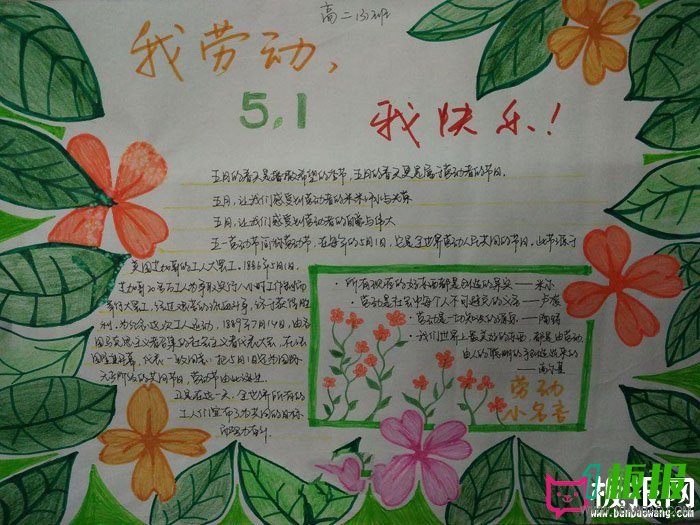 高二(3)班
我劳动,
5.1
我快乐!
五月的春天是播撒希望的季节,五月的春天更是属于劳动者的节日。
五月,让我们感受到劳动者的
五月,让我们感受到劳动者的 与伟大
五一劳动节简称劳动节,在每年的5月1日,它是全世界劳动人民共同的节日,此节源于
美国芝加哥的工人大罢工。1886年5月1日,
芝加哥 工人为争取实行八小时工作制而
举行大罢工,经过 的流血斗争,终于获得胜
利,为纪念这次工人运动,1889年7月14日,由各
国马克思主义者召集的社会主义者代表大会,在法
国 开幕,代表一致同意:把5月1日定为国际
无产阶级的共同节日,劳动节由此诞生。
在这一天,全世界所有的
工人们 为共同的目标
而努力奋斗。
· 所有现存的好东西都是创造的果实——米尔
· 劳动是社会中每个人不可避免的义务——卢梭
· 劳动是一切 的源泉——陶铸
· 我们世界上最美好的东西,都是由劳动、
由人的聪明的手创造出来的
——高尔基
劳动
小名言
板报网
www.banbaowang.com